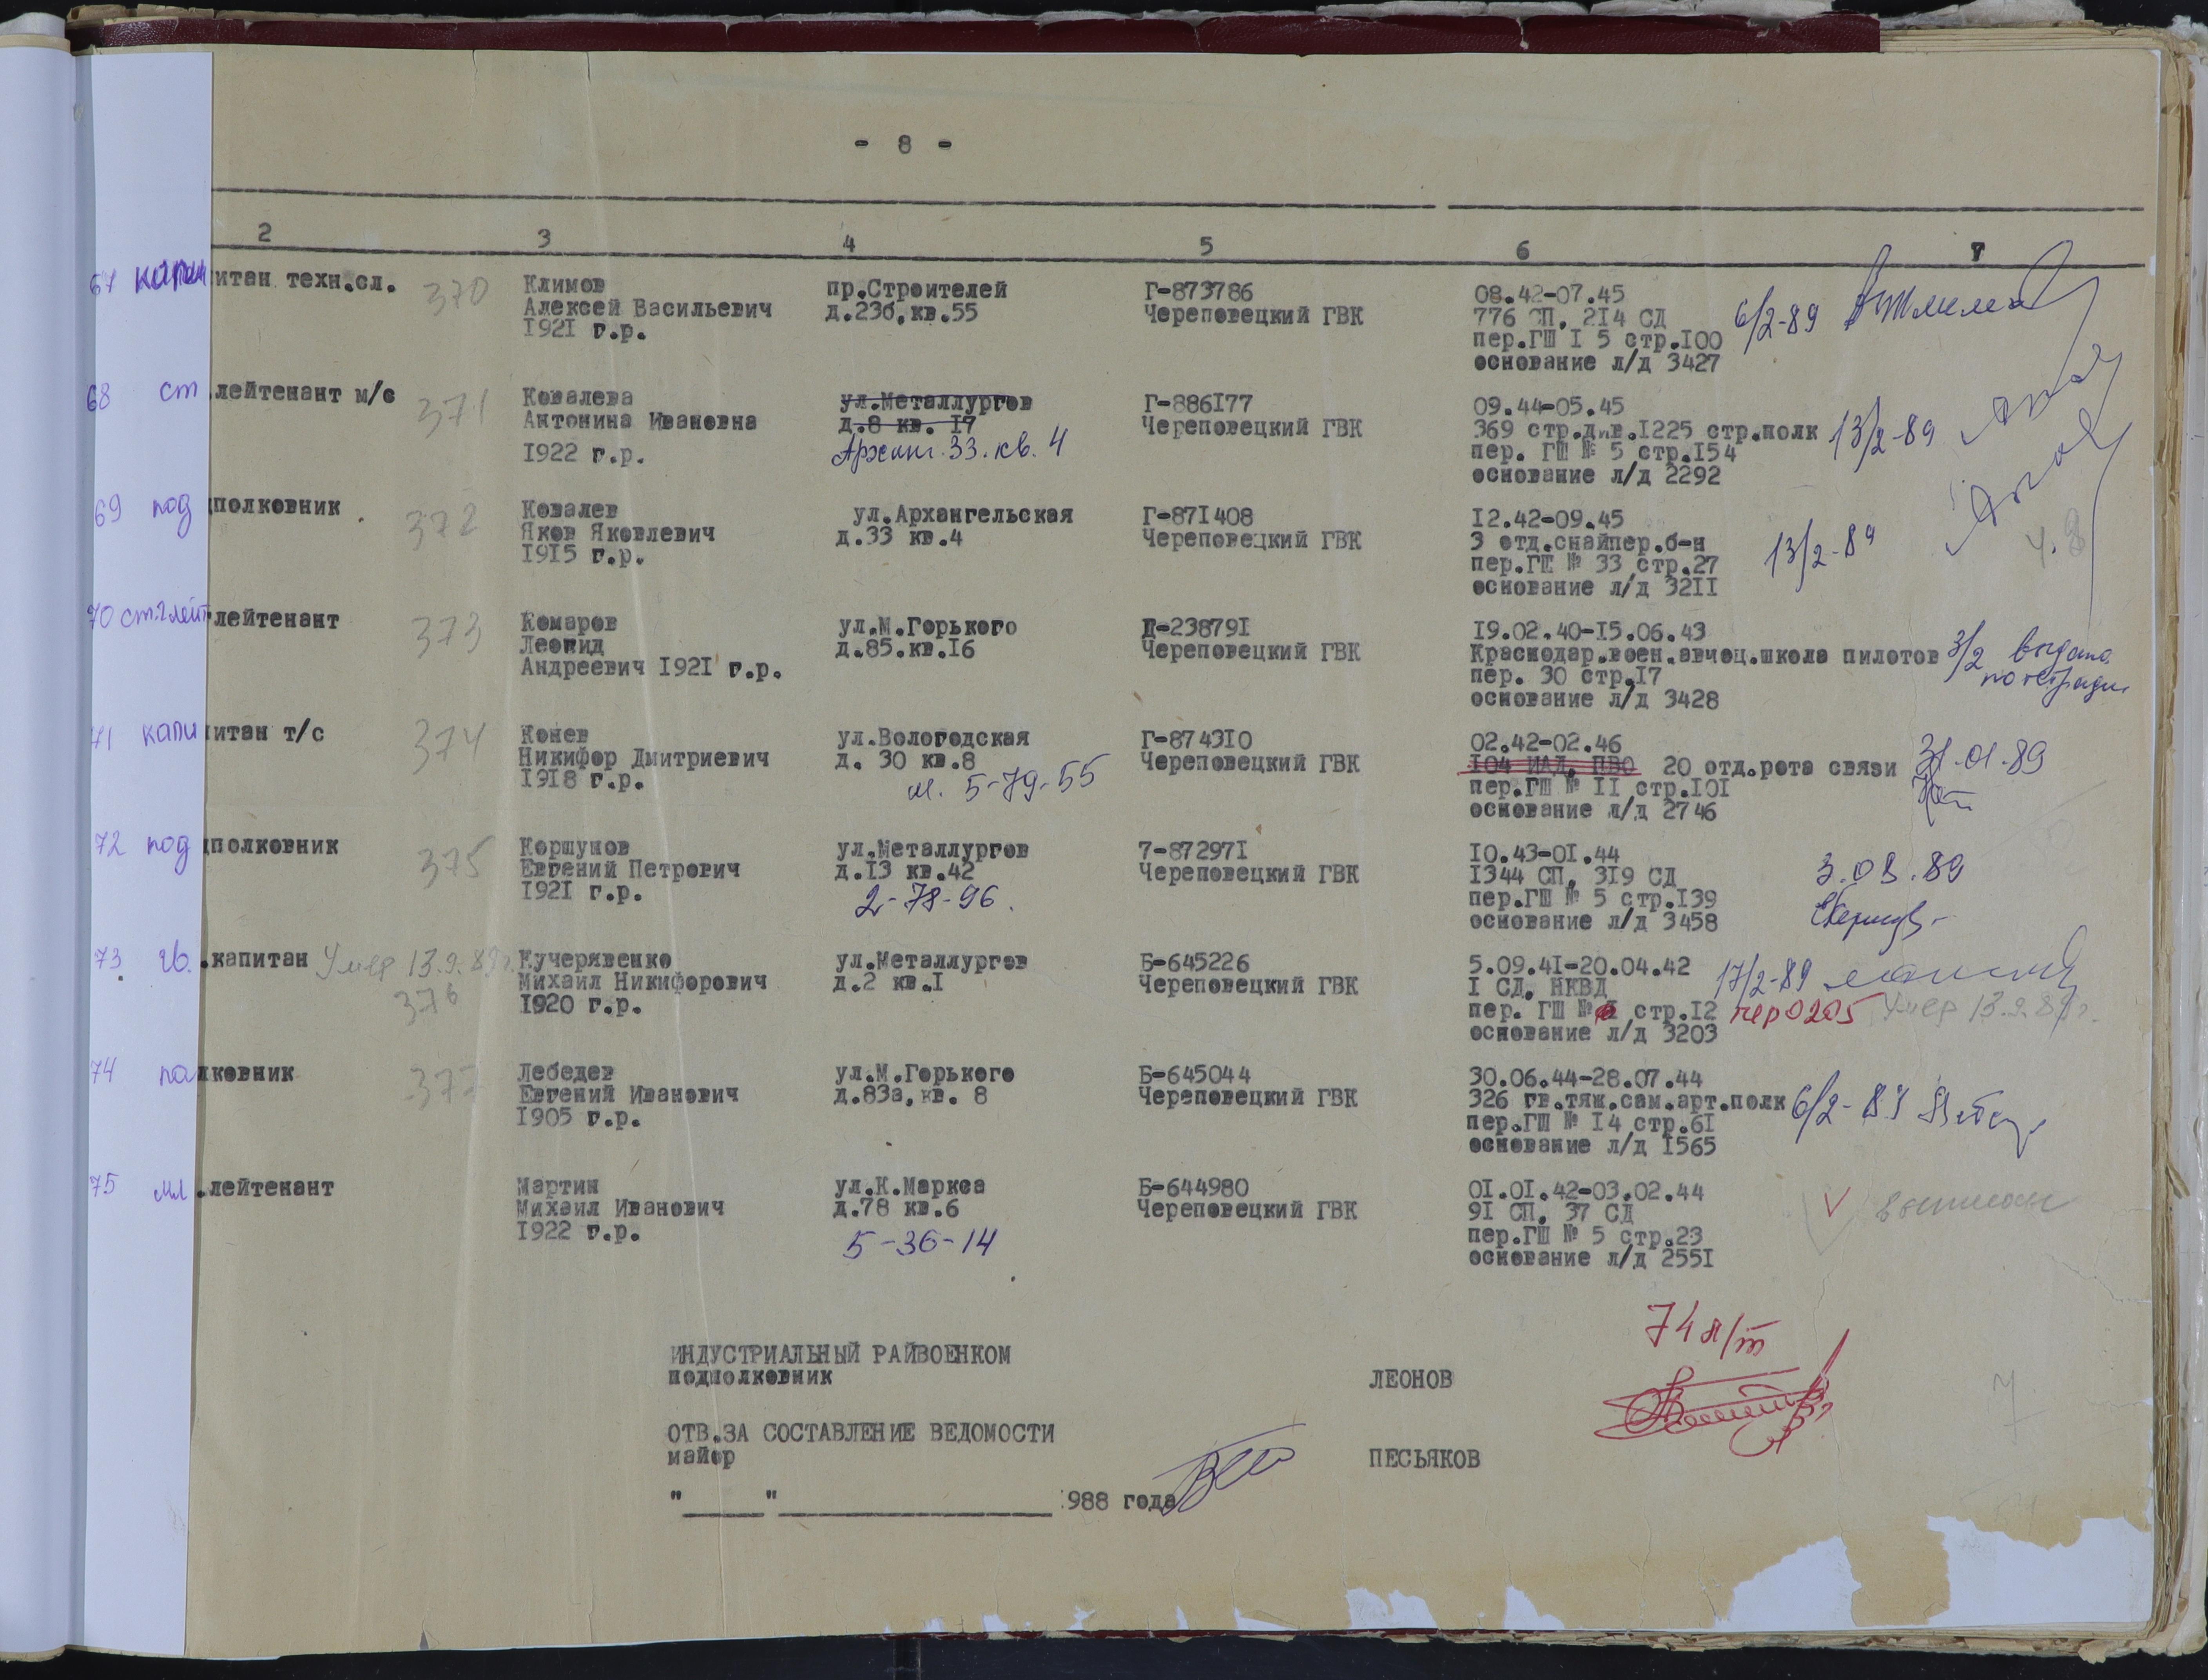 - 8 -
2 3 4 5 6 7
67 капи итан техн.сл. 370 Климов пр.Строителей Г-873786 08.42-07.45
Алексей Васильевич д.23б,кв.55 Череповецкий ГВК 776 СП, 214 СД 6/2-89
1921 г.р. пер.ГШ I 5 стр.100
основание л/д 3427
68 ст .лейтенант м/с 371 Ковалева ул.Металлургов Г-886177 09.44-05.45
Антонина Ивановна д.8 кв. 17 Череповецкий ГВК 369 стр.див.1225 стр.полк 13/2-89
1922 г.р. Арханг. 33. кв. 4 пер. ГШ № 5 стр.154
основание л/д 2292
69 под дполковник 372 Ковалев ул.Архангельская Г-871408 12.42-09.45
Яков Яковлевич д.33 кв.4 Череповецкий ГВК 3 отд.снайпер.б-н 13/2-89
1915 г.р. пер.ГШ № 33 стр.27
основание л/д 3211
70 ст.лейт лейтенант 373 Комаров ул.М.Горького Д-238791 19.02.40-15.06.43
Леонид д.85.кв.16 Череповецкий ГВК Краснодар.воен.авиац.школа пилотов 3/2 выдано
Андреевич 1921 г.р. пер. 30 стр.17
основание л/д 3428
71 капи итан т/с 374 Конев ул.Вологодская Г-874310 02.42-02.46
Никифор Дмитриевич д. 30 кв.8 Череповецкий ГВК 104 ИАД, ПВО 20 отд.рота связи 31.01.89
1918 г.р. 5-79-55 пер.ГШ № 11 стр.101
основание л/д 2746
72 под дполковник 375 Коршунов ул.Металлургов 7-872971 10.43-01.44
Евгений Петрович д.13 кв.42 Череповецкий ГВК 1344 СП, 319 СД 3.03.89
1921 г.р. 2-78-96. пер.ГШ № 5 стр.139
основание л/д 3458
73 гв. .капитан Умер 13.9.89г. Кучерявенко ул.Металлургов Б-645226 5.09.41-20.04.42
376 Михаил Никифорович д.2 кв.1 Череповецкий ГВК 1 СД, НКВД 17/2-89
1920 г.р. пер. ГШ № стр.12 пер 0205 Умер 13.9.89г.
основание л/д 3203
74 пол лковник 377 Лебедев ул.М.Горького Б-645044 30.06.44-28.07.44
Евгений Иванович д.83а,кв. 8 Череповецкий ГВК 326 гв.тяж.сам.арт.полк 6/2-89
1905 г.р. пер.ГШ № 14 стр.61
основание л/д 1565
75 мл .лейтенант Мартин ул.К.Маркса Б-644980 01.01.42-03.02.44
Михаил Иванович д.78 кв.6 Череповецкий ГВК 91 СП, 37 СД
1922 г.р. 5-36-14 пер.ГШ № 5 стр.23
основание л/д 2551
ИНДУСТРИАЛЬНЫЙ РАЙВОЕНКОМ
подполковник ЛЕОНОВ
ОТВ.ЗА СОСТАВЛЕНИЕ ВЕДОМОСТИ
майор ПЕСЬЯКОВ
"____"______________1988 года